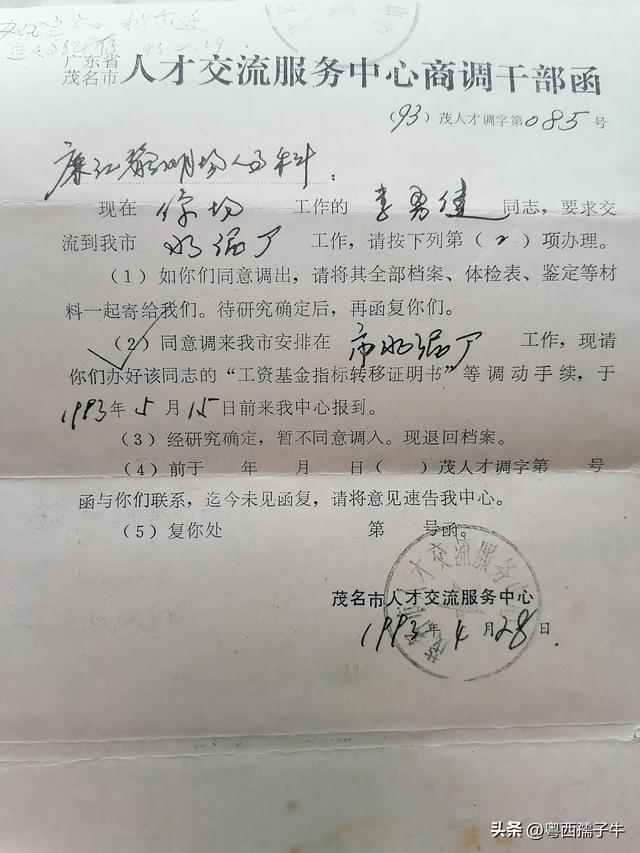 广东省
茂名市 人才交流服务中心商调干部函
(93) 茂人才调字第085号
廉江黎明场人事科:
现在 你场 工作的 李勇健 同志,要求交
流到我市 水泥厂 工作,请按下列第(2)项办理。
(1)如你们同意调出,请将其全部档案、体检表、鉴定等材
料一起寄给我们。待研究确定后,再函复你们。
(2)同意调来我市安排在 市水泥厂 工作,现请
你们办好该同志的“工资基金指标转移证明书”等调动手续,于
1993年5月15日前来我中心报到。
(3)经研究确定,暂不同意调入。现退回档案。
(4)前于 年 月 日( )茂人才调字第 号
函与你们联系,迄今未见函复,请将意见速告我中心。
(5)复你处 第 号函。
茂名市人才交流服务中心
1993年4月28日
头条 @粤西孺子牛